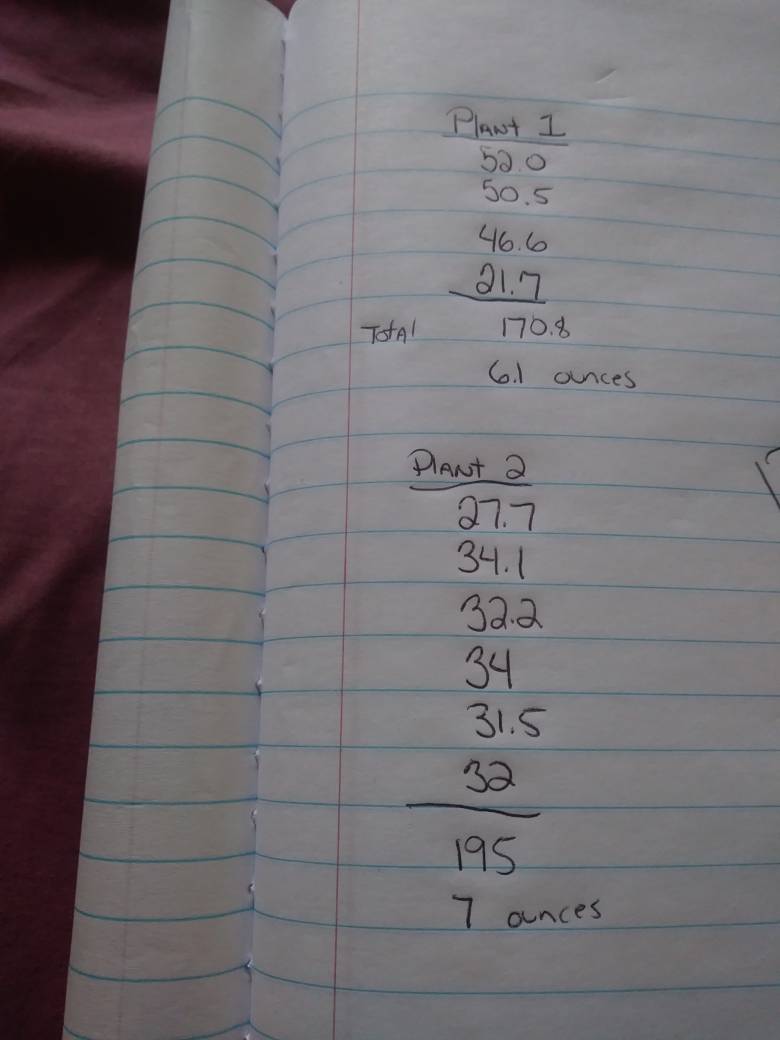 Plant 1
52.0
50.5
46.6
21.7
Total 170.8
6.1 ounces
Plant 2
27.7
34.1
32.2
34
31.5
32
195
7 ounces